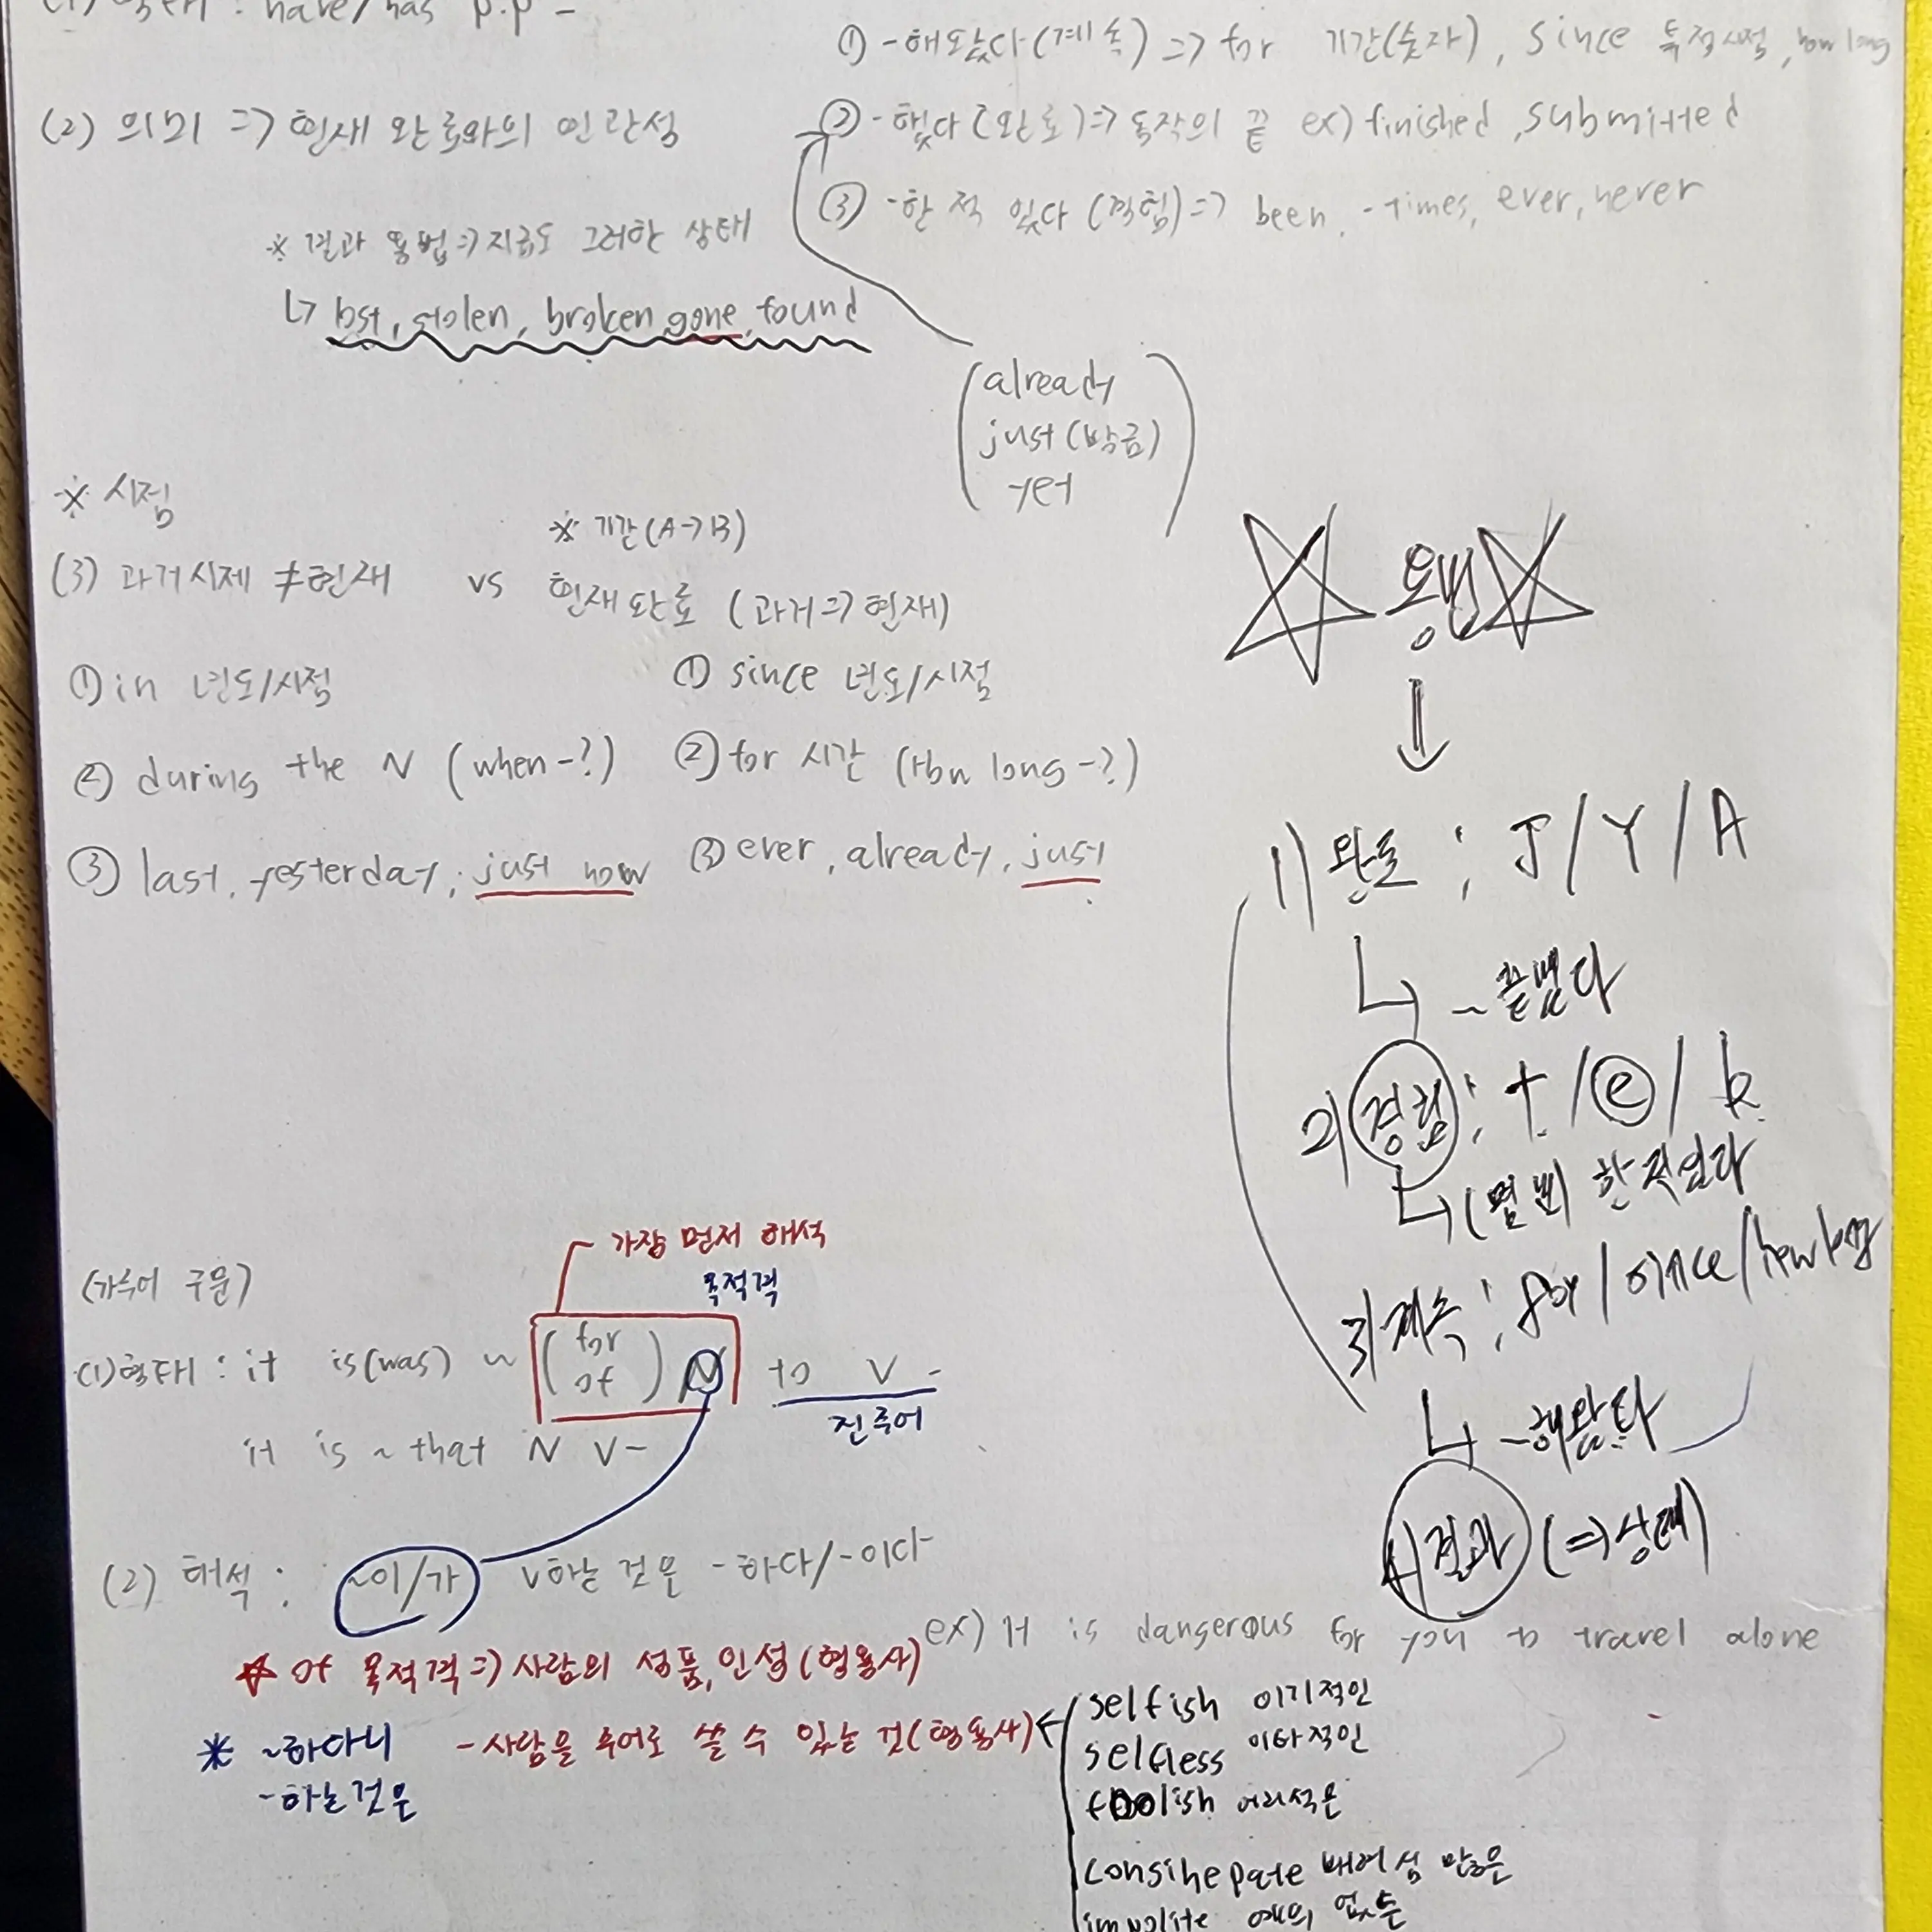 have/has p.p -
① -해왔다(계속) => for 기간(숫자), since 특정시점, how long
(2) 의미 => 현재 완료와의 연관성
② -했다(완료)=> 동작의 끝 ex) finished, submitted
③ -한 적 있다 (경험)=> been, -times, ever, never
※ 결과 용법=>지금도 그러한 상태
↳ lost, stolen, broken, gone, found
already
just(방금)
yet
※ 시점
※ 기간(A->B)
(3) 과거시제 ≠현재 vs 현재완료 (과거=>현재)
① in 년도/시점
① since 년도/시점
② during the N (when-?)
② for 시간 (How long-?)
③ last, yesterday, just now
③ ever, already, just
용법
↓
1) 완료 ; J / Y / A
↳ ~끝냈다
2) 경험 ; t / e / b
↳ (몇 번) 한적있다
3) 계속 ; for / since / how long
↳ ~해왔다
4) 결과 (=>상태)
(가주어 구문)
가장 먼저 해석
목적격
(1)형태 : it is(was) ~ (for of) N to V -
진주어
it is ~ that N V-
(2) 해석 : ~이/가 V하는 것은 -하다/-이다
ex) It is dangerous for you to travel alone
☆ of 목적격=>사람의 성품,인성(형용사)
※ ~하다니 -사람을 주어로 쓸 수 있는 것(형용사)
-하는것은
selfish 이기적인
selfless 이타적인
foolish 어리석은
consihepate 배려심 많은
impolite 예의 없는